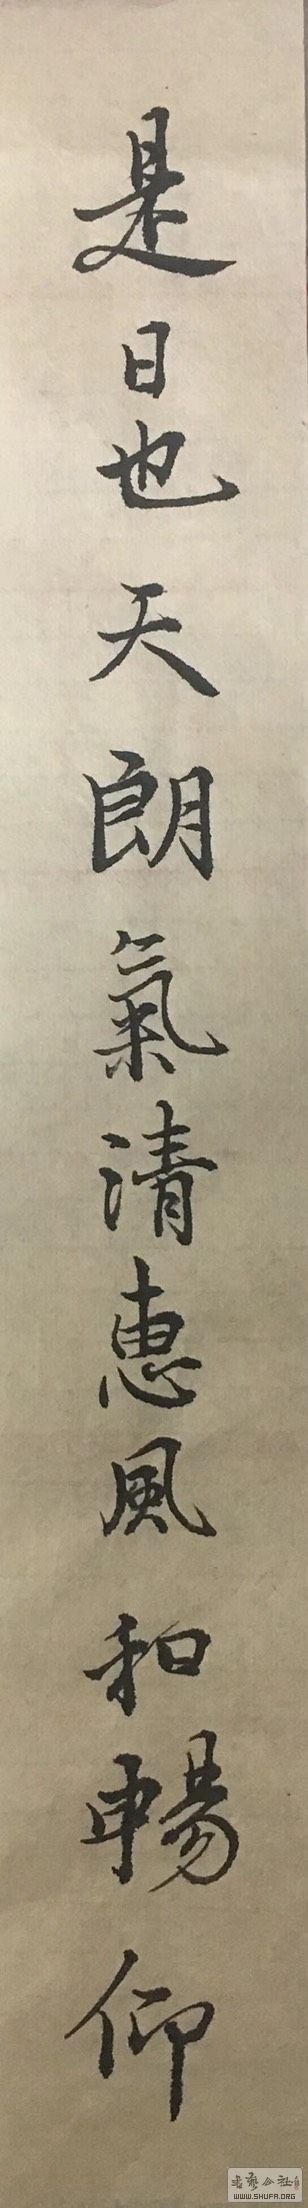 是日也天朗氣清惠風和暢仰
WWW.SHUFA.ORG